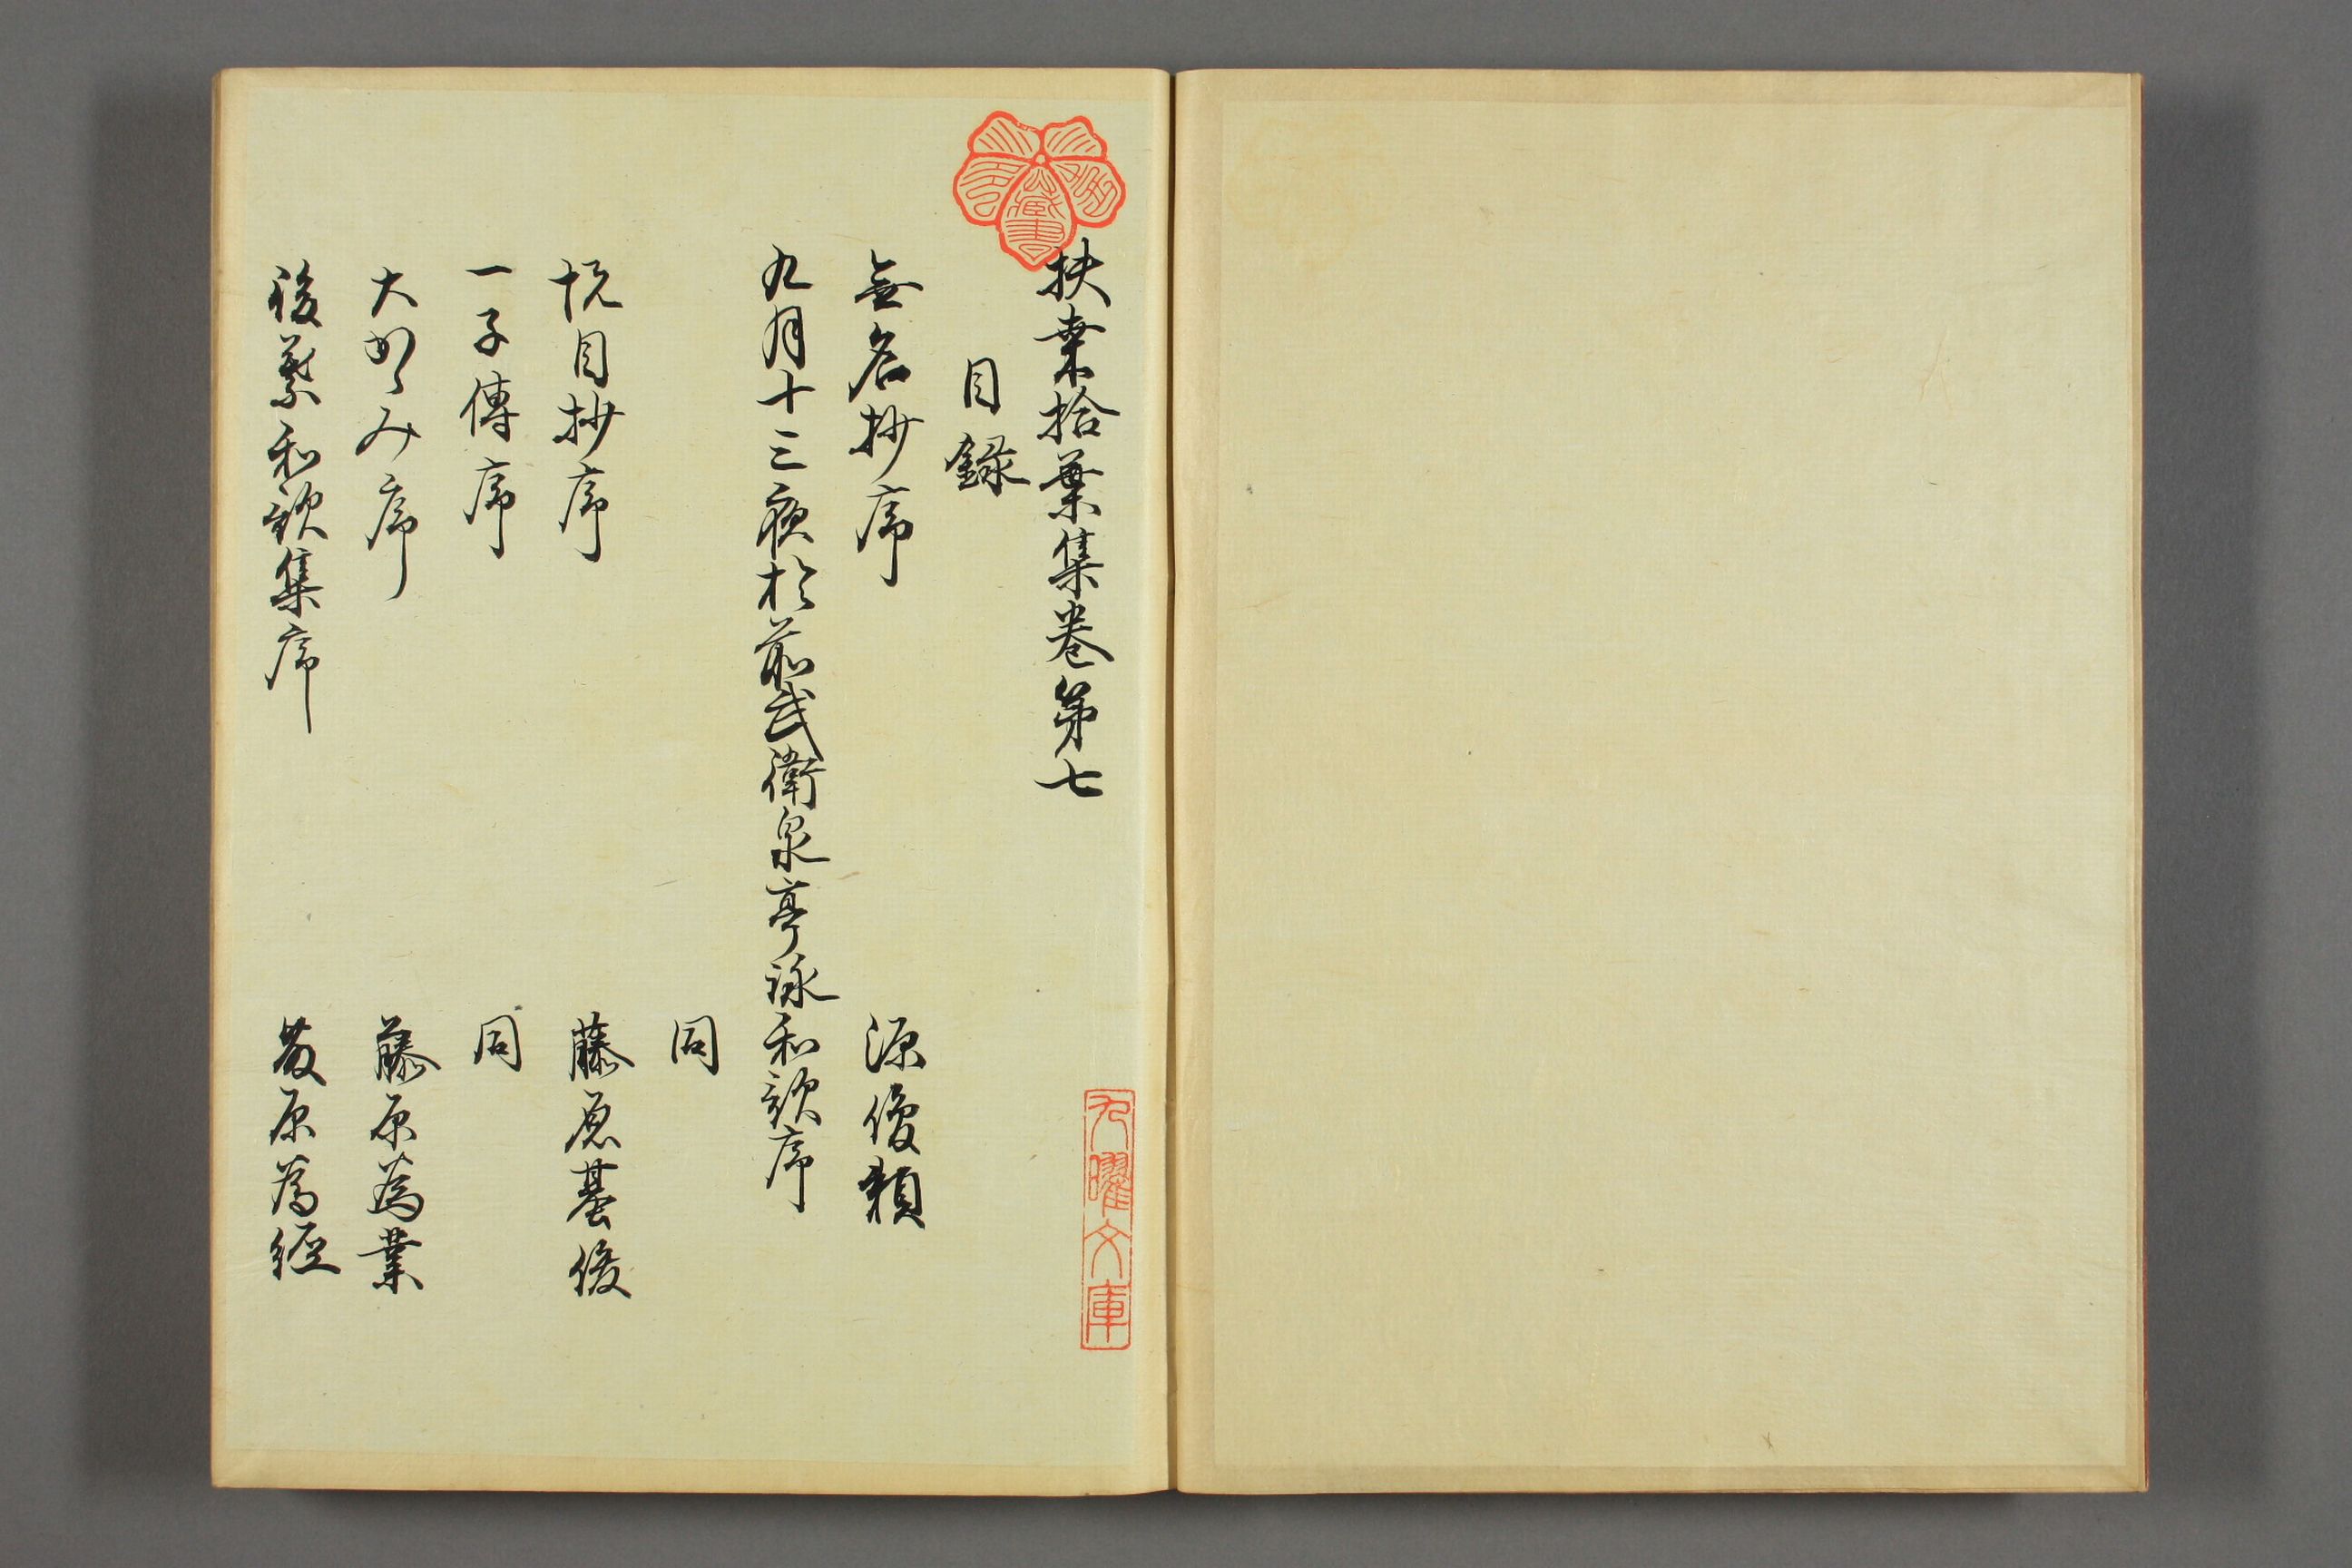 扶桒拾葉集巻第七
目録
無名抄序 源俊頼
九月十三夜於前武衛泉亭詠和歌序
同
悦目抄序 藤原基俊
一子傳序 同
大かゝみ序 藤原為業
後葉和歌集序 藤原為經
九曜文庫